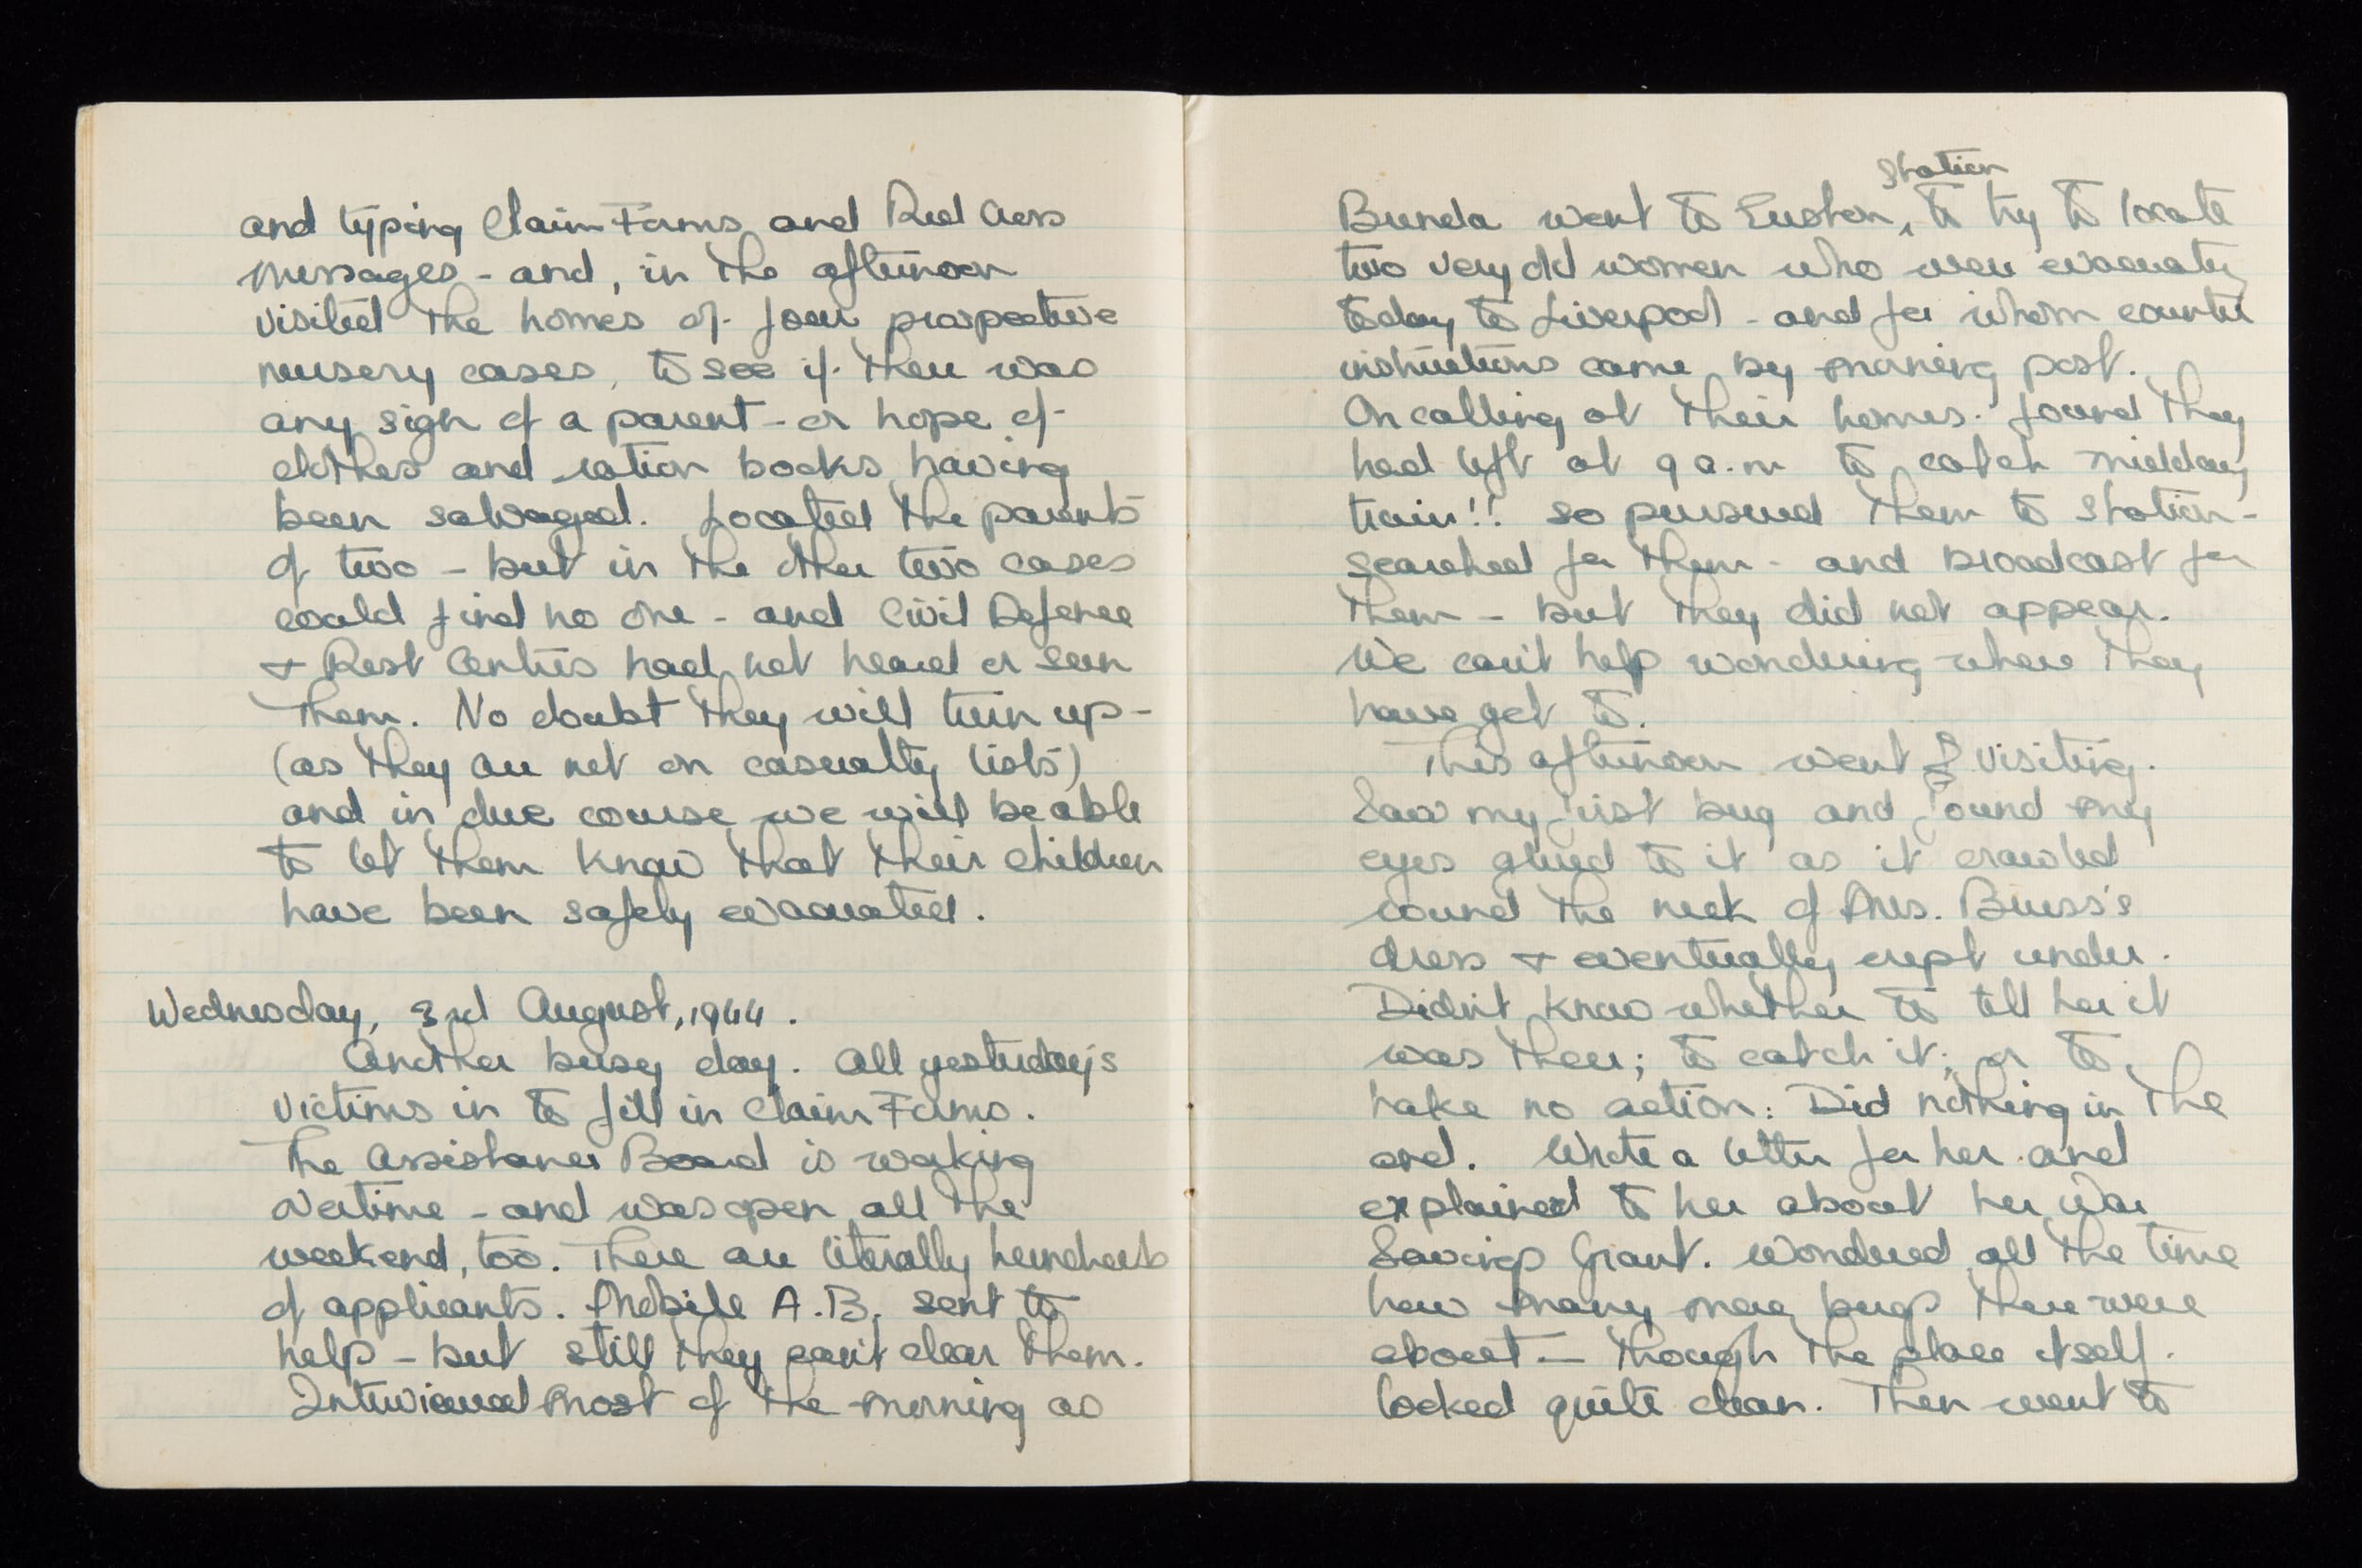 and typing Claim Forms and Red Cross
messages - and, in the afternoon
visited the homes of four prospective
nursery cases, to see if there was
any sign of a parent - or hope of
clothes and ration books having
been salvaged. Located the parents
of two - but in the other two cases
could find no one - and Civil Defence
& Rest Centres had not heard or seen
them. No doubt they will turn up -
(as they are not on casualty lists)
and in due course we will be able
to let them know that their children
have been safely evacuated.
Wednesday, 3rd August, 1944.
Another busy day. All yesterday's
victims in to fill in Claim Forms.
The Assistance Board is working
overtime - and was open all the
weekend, too. There are literally hundreds
of applicants. Mobile A.B. sent to
help - but still they can't clear them.
Interviewed most of the morning as
Brenda went to Euston Station, to try to locate
two very old women who were evacuating
today to Liverpool - and for whom counter
instructions came by morning post.
On calling at their homes. found they
had left at 9 a.m to catch midday
train!! so pursued them to station -
searched for them - and broadcast for
them - but they did not appear.
We can't help wondering where they
have got to.
This afternoon went visiting.
Saw my first bug and found my
eyes glued to it as it crawled
round the neck of Mrs. Burss's
dress & eventually crept under.
Didn't know whether to tell her it
was there; to catch it; or to
take no action: Did nothing in the
end. Wrote a letter for her and
explained to her about her War
Savings Grant. Wondered all the time
how many more bugs there were
about - though the place itself.
looked quite clean. Then went to